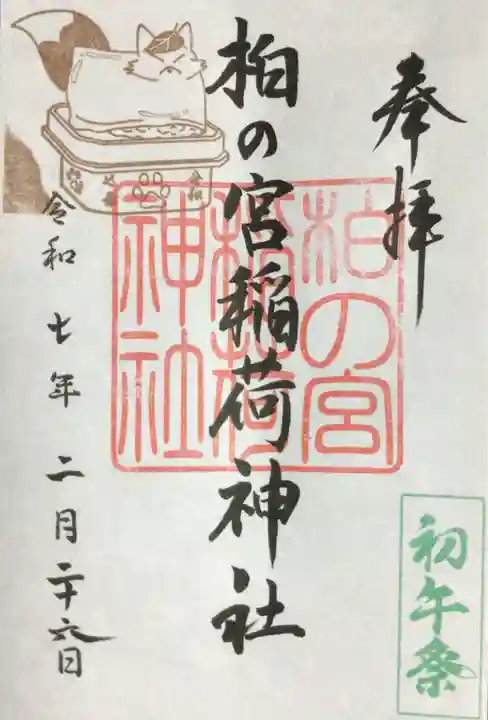 奉拝
柏の宮稲荷神社
柏の宮
稲荷
神社
令和七年二月二十六日
初午祭